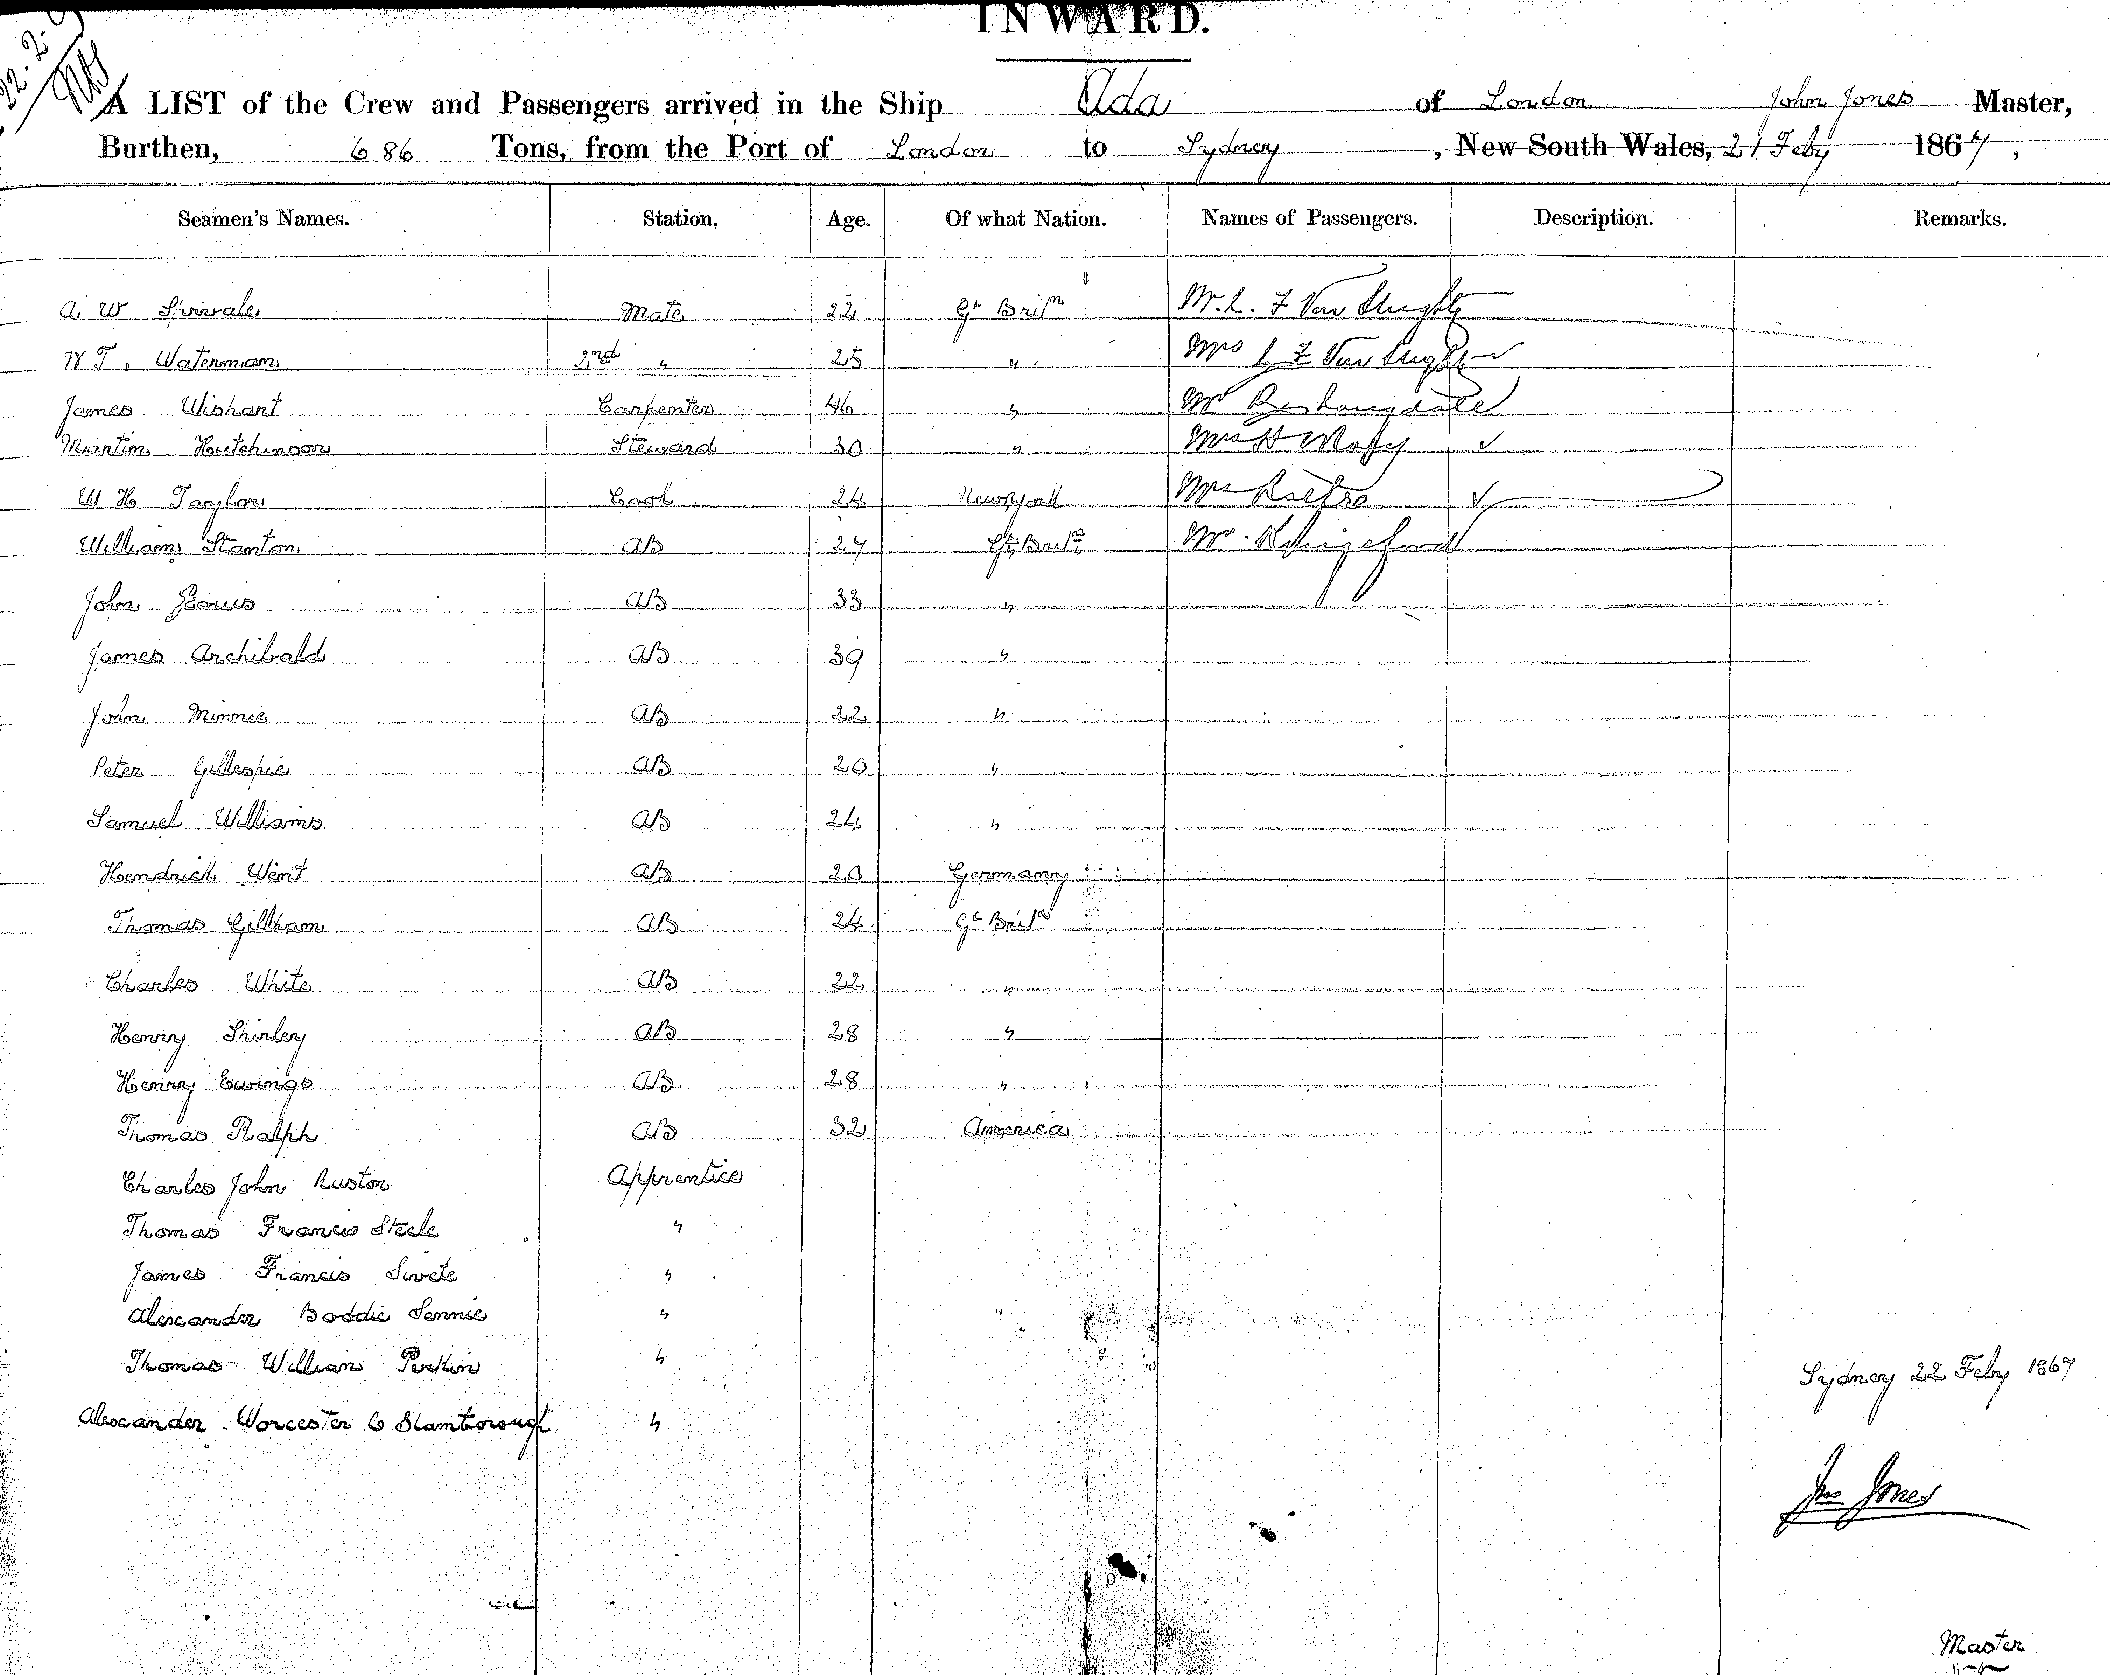 INWARD.
A LIST of the Crew and Passengers arrived in the Ship Ada of London John Jones Master,
Burthen, 686 Tons, from the Port of London to Sydney, New South Wales, 21 Feby 1867,
Seamen's Names. Station. Age. Of what Nation. Names of Passengers. Description. Remarks.
A. W Mate 22 Gt Britn Mr. L. F Van
W T. Waterman 2nd " 25 " Mrs L F Van
James Wishart Carpenter 46 " Mr
Martin Hutchinson Steward 30 " Mrs H
W H Taylor Cook 24 Newyork Mrs
William Stanton AB 27 Gt Britn Mr.
John AB 33 "
James Archibald AB 39 "
John Minnie AB 22 "
Peter Gillespie AB 20 "
Samuel Williams AB 24 "
Hendrick Went AB 20 Germany
Thomas Gillham AB 24 Gt Britn
Charles White AB 22 "
Henry Shirley AB 28 "
Henry Ewings AB 28 "
Thomas Ralph AB 32 America
Charles John Ruston Apprentice
Thomas Francis Steele "
James Francis "
Alexander Boddie Rennie "
Thomas William Perkin "
Sydney 22 Feby 1867
Alexander Worcester C Stamborough "
Jno Jones
Master